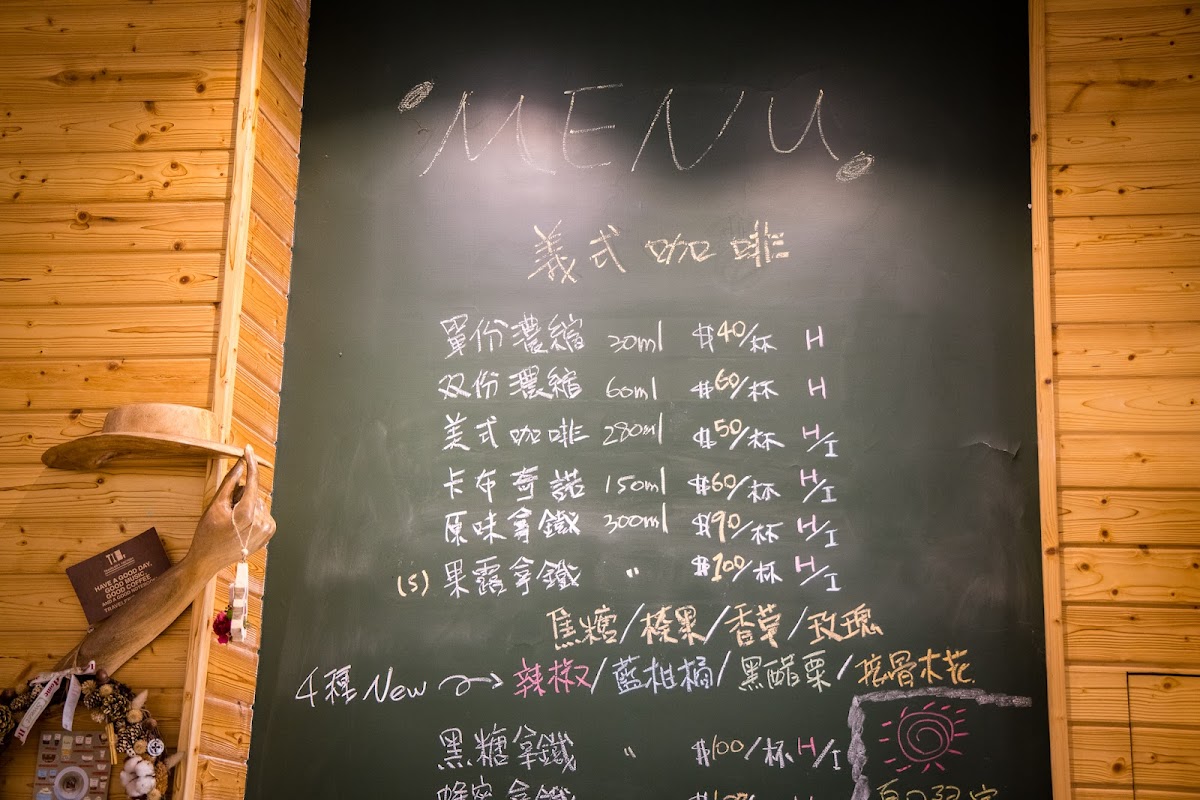 MENU
義式咖啡
單份濃縮 30ml $40/杯 H
双份濃縮 60ml $60/杯 H
美式咖啡 280ml $50/杯 H/I
卡布奇諾 150ml $60/杯 H/I
原味拿鐵 300ml $90/杯 H/I
(5) 果露拿鐵 〃 $100/杯 H/I
焦糖/榛果/香草/玫瑰
4種New → 辣椒/藍柑橘/黑醋栗/接骨木花
黑糖拿鐵 〃 $100/杯 H/I
蜂蜜拿鐵
HAVE A GOOD DAY,
GOOD MUSIC,
GOOD COFFEE